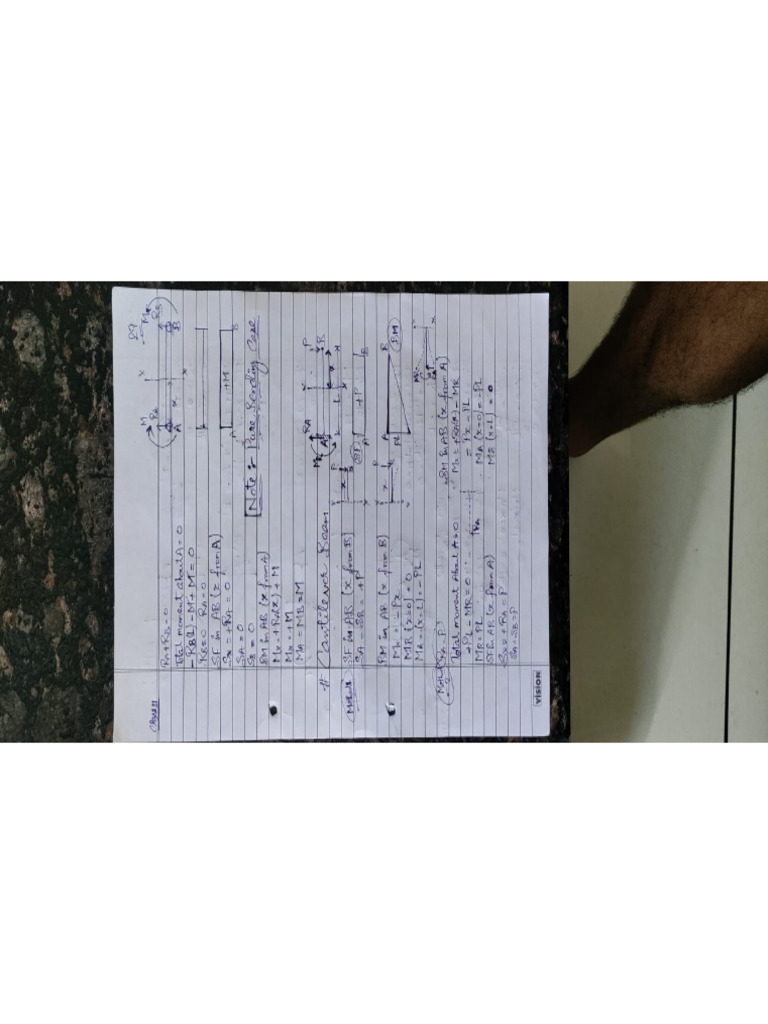 Case II
29
RA+RB=0
Total moment about A = 0
-RB(L)-M+M=0
RB=0 RA=0
SF in AB (x from A)
Sx=+RA=0
SA=0
SB=0
BM in AB (x from A)
Mx=+RA(x)+M
Mx=+M
MA=MB=M
M RA x x M RB
A B
+M
A B
Note: Pure Bending Case
# Cantilever Beam
SF in AB (x from B)
SA=SB=+P
BM in AB (x from B)
Mx=-Px
MB (x=0)=0
MA=(x=L)=-PL
RA P
A B
L
+P
A B
A B
PL
BM
Total moment About A=0
+PL-MR=0
MR=PL
SF in AB (x from A)
Sx=+RA=P
SA=SB=P
BM in AB (x from A)
Mx=+RA(x)-MR
=Px-PL
MA (x=0)=-PL
MB (x=L)=0
VISION